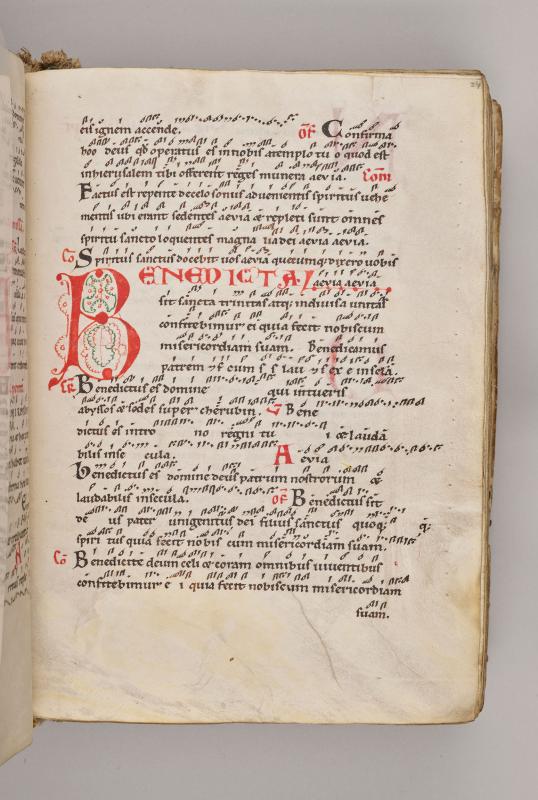 eis ignem accende. Of Confirma
hoc deus qd operatus es in nobis a templo tuo quod est
in hierusalem tibi offerent reges munera aevia. Com
Factus est repente de celo sonus advenientis spiritus vehe
mentis ubi erant sedentes aevia & repleti sunt omnes
spiritu sancto loquentes magnalia dei aevia aevia.
Co Spiritus sanctus docebit vos aevia quecumq; dixero vobis
BENEDICTA aevia aevia
sit sancta trinitas atq; indivisa unitas
confitebimur ei quia fecit nobiscum
misericordiam suam. Benedicamus
patrem
Benedictus es domine qui intueris
abyssos & sedes super cherubin. Bene
dictus es in throno regni tui & lauda
bilis in secula. Aevia
Benedictus es domine deus patrum nostrorum &
laudabilis in secula. Of Benedictus sit
deus pater unigenitus dei filius sanctus quoq;
spiritus quia fecit nobis cum misericordiam suam.
Co Benedicite deum celi & coram omnibus viventibus
confitebimur ei quia fecit nobiscum misericordiam
suam.